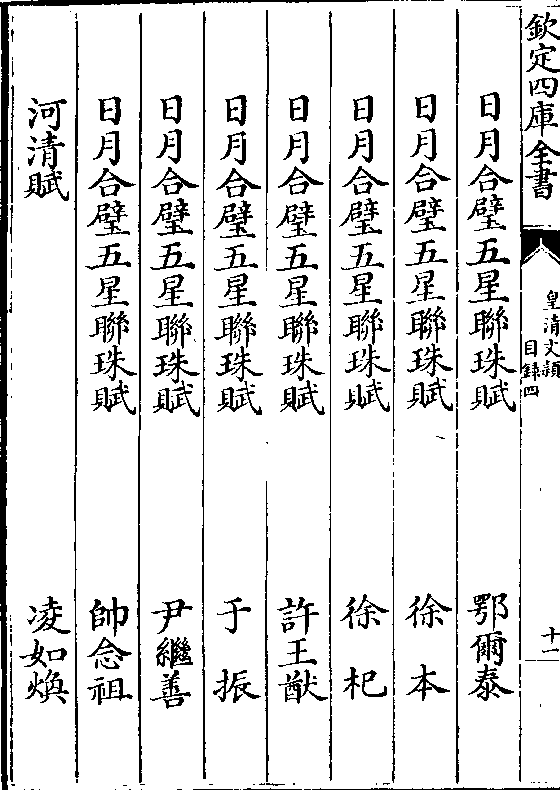 欽定四庫全書
皇清文穎
目錄四
十二
日月合璧五星聯珠賦 鄂爾泰
日月合璧五星聯珠賦 徐本
日月合璧五星聯珠賦 徐杞
日月合璧五星聯珠賦 許王猷
日月合璧五星聯珠賦 于振
日月合璧五星聯珠賦 尹繼善
日月合璧五星聯珠賦 帥念祖
河清賦 凌如煥